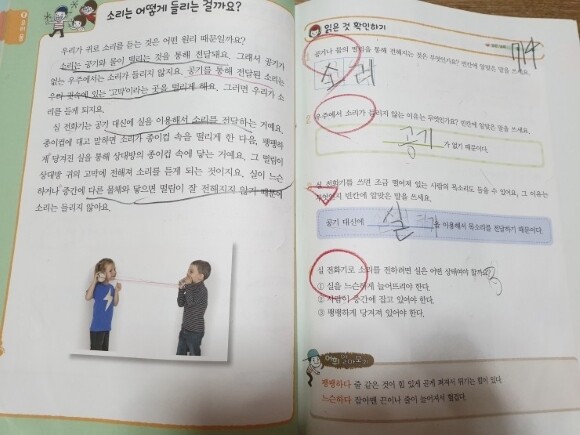 소리는 어떻게 들리는 걸까요?
우리가 귀로 소리를 듣는 것은 어떤 원리 때문일까요?
소리는 공기와 물이 떨리는 것을 통해 전달돼요. 그래서 공기가
없는 우주에서는 소리가 들리지 않지요. 공기를 통해 전달된 소리는
우리 귓속에 있는 고막이라는 곳을 떨리게 해요. 그러면 우리가 소
리를 듣게 되지요.
실 전화기는 공기 대신에 실을 이용해서 소리를 전달하는 거예요.
종이컵에 대고 말하면 소리가 종이컵 속을 떨리게 한 다음, 팽팽하
게 당겨진 실을 통해 상대방의 종이컵 속에 닿는 거예요. 그 떨림이
상대방 귀의 고막에 전해져 소리를 듣게 되는 것이지요. 실이 느슨
하거나 중간에 다른 물체와 닿으면 떨림이 잘 전해지지 않기 때문에
소리는 들리지 않아요.
읽은 것 확인하기
공기나 물의 떨림을 통해 전해지는 것은 무엇인가요? 빈칸에 알맞은 말을 쓰세요.
소리
우주에서 소리가 들리지 않는 이유는 무엇인가요? 빈칸에 알맞은 말을 쓰세요.
공기 가 없기 때문이다.
실 전화기를 쓰면 조금 떨어져 있는 사람의 목소리도 들을 수 있어요. 그 이유는
무엇인지 빈칸에 알맞은 말을 쓰세요.
공기 대신에 실 을 이용해서 목소리를 전달하기 때문이다.
실 전화기로 소리를 전하려면 실은 어떤 상태여야 할까요?
① 실을 느슨하게 늘어뜨려야 한다.
② 사람이 중간에 잡고 있어야 한다.
③ 팽팽하게 당겨져 있어야 한다.
팽팽하다 줄 같은 것이 힘 있게 곧게 펴져서 튀기는 힘이 있다.
느슨하다 잡아맨 끈이나 줄이 늘어져서 헐겁다.